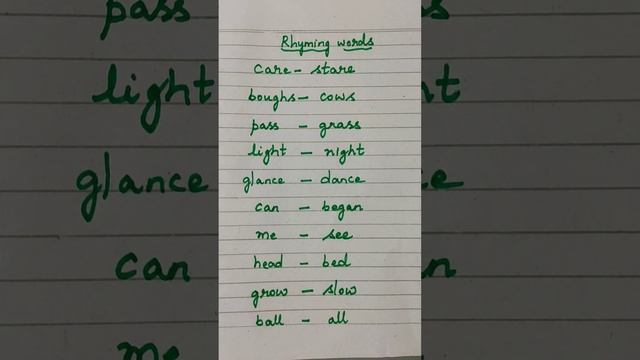 Rhyming words
care - stare
boughs - cows
pass - grass
light - night
glance - dance
can - began
me - see
head - bed
grow - slow
ball - all
pass
light
glance
can
me